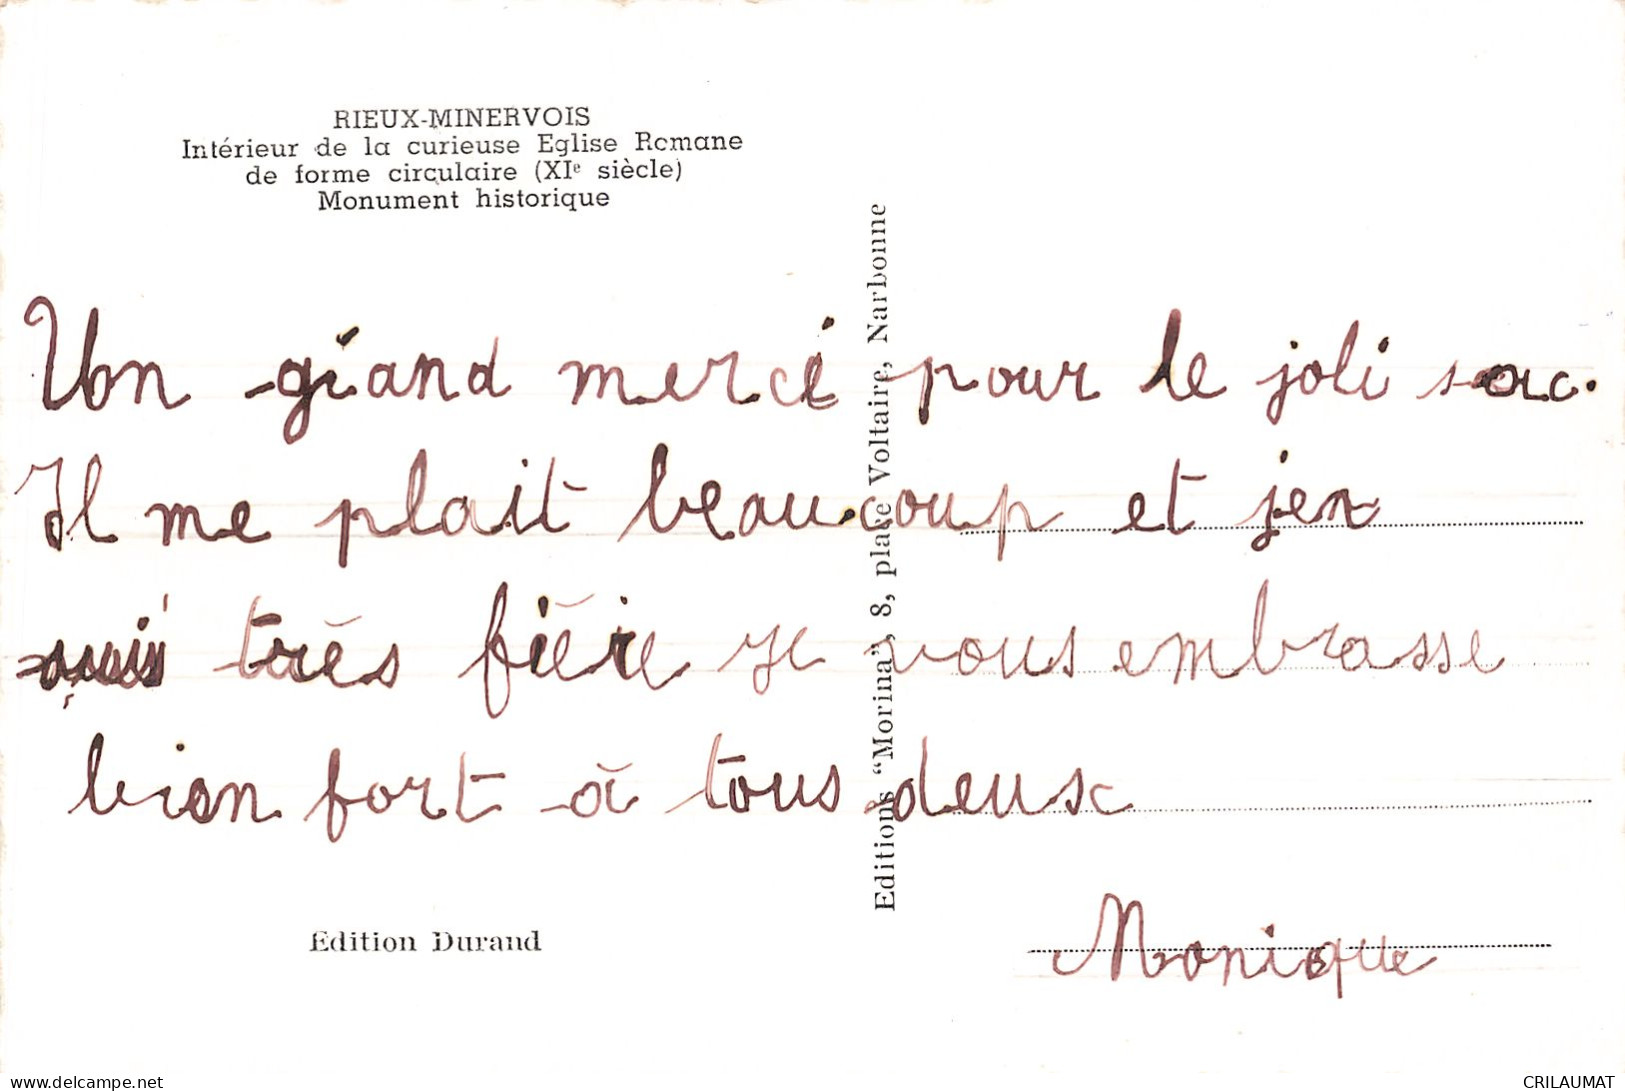 RIEUX-MINERVOIS
Intérieur de la curieuse Eglise Romane
de forme circulaire (XIe siècle)
Monument historique
Un grand merci pour le joli sac.
Il me plait beaucoup et j'en
suis très fière je vous embrasse
bien fort à tous deux
Monique
Edition Durand
Editions "Morina", 8, place Voltaire, Narbonne
delcampe.net
CRILAUMAT